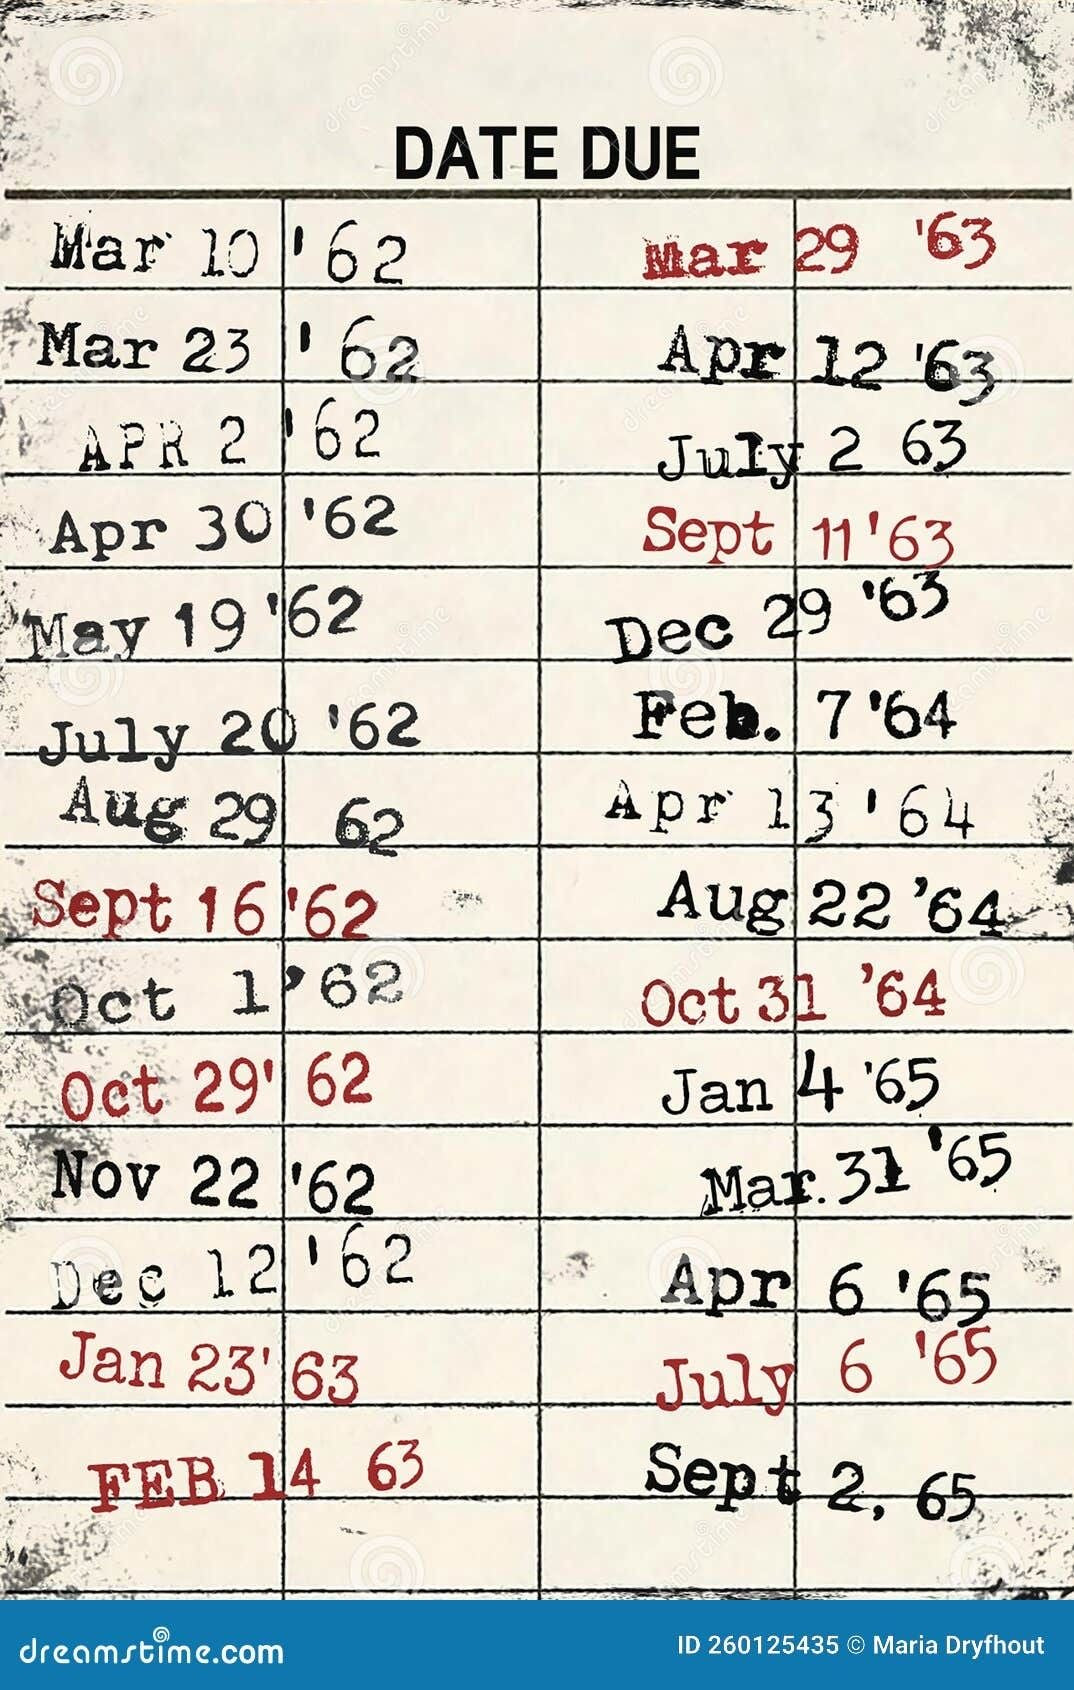 DATE DUE
Mar 10 '62
Mar 23 '62
APR 2 '62
Apr 30 '62
May 19 '62
July 20 '62
Aug 29 62
Sept 16 '62
Oct 1 '62
Oct 29' 62
Nov 22 '62
Dec 12 '62
Jan 23' 63
FEB 14 63
Mar 29 '63
Apr 12 '63
July 2 63
Sept 11 '63
Dec 29 '63
Feb. 7 '64
Apr 13 '64
Aug 22 '64
Oct 31 '64
Jan 4 '65
Mar. 31 '65
Apr 6 '65
July 6 '65
Sept 2, 65
dreamstime.com
ID 260125435 © Maria Dryfhout